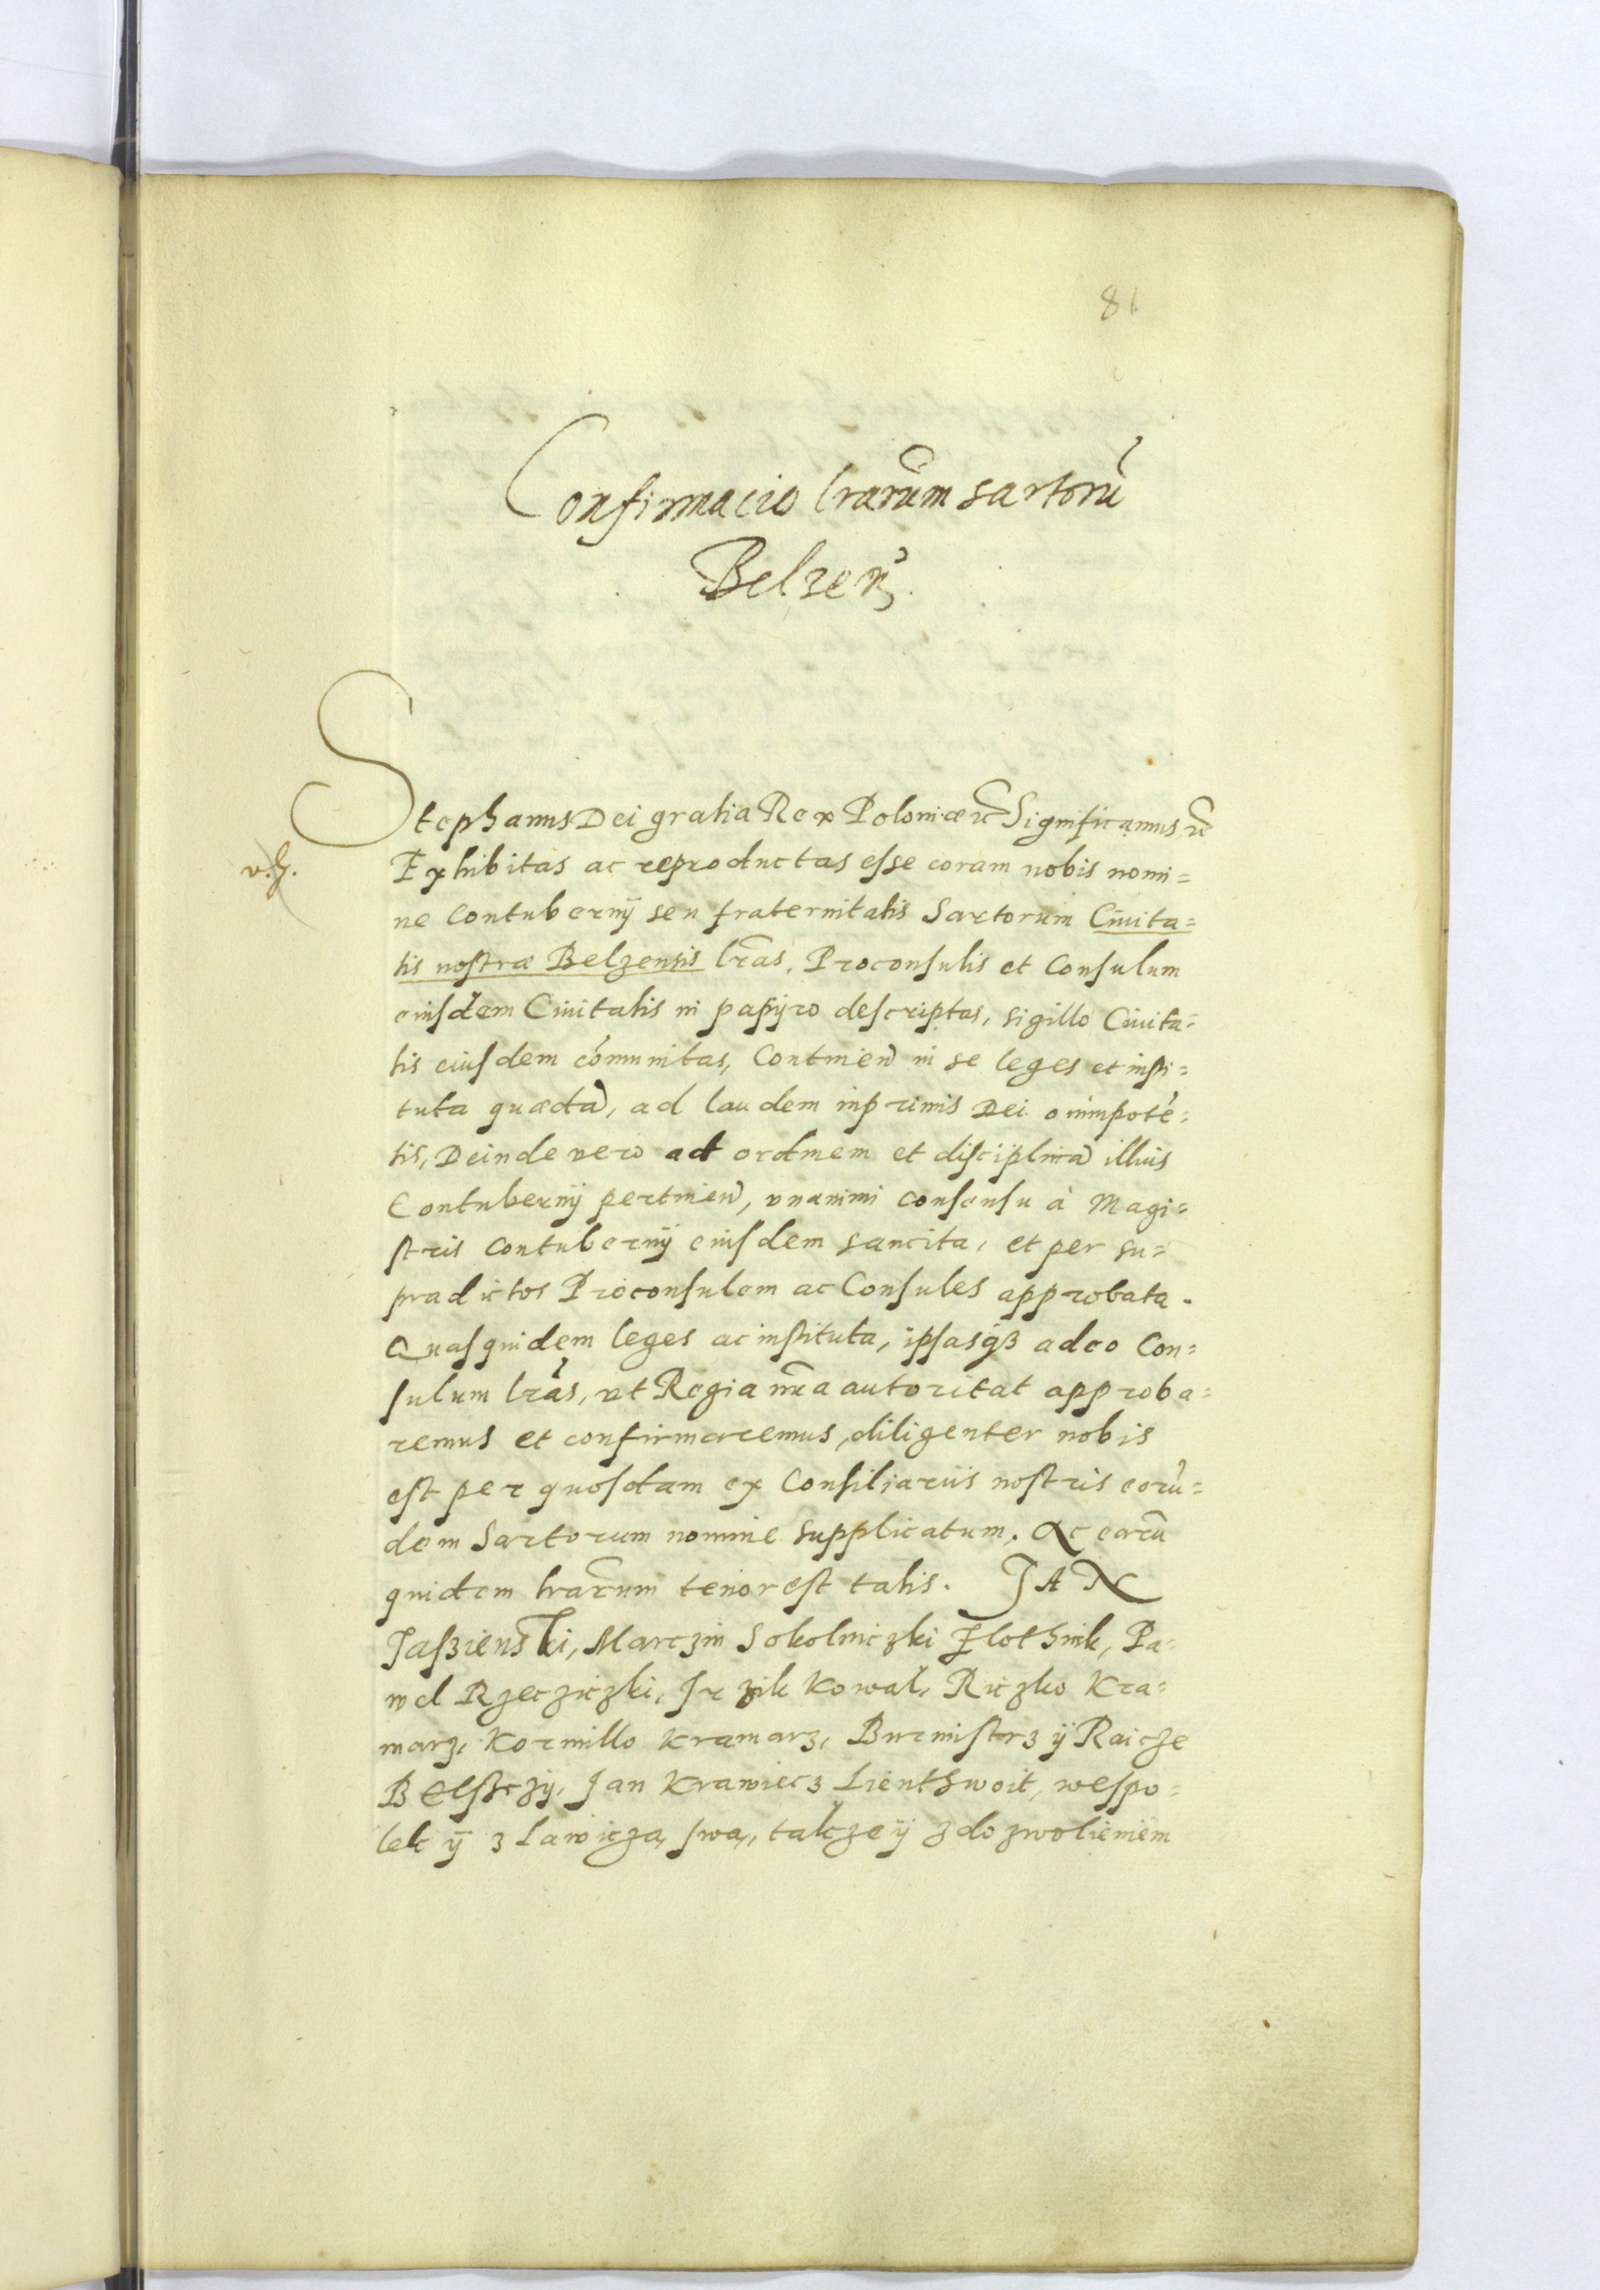 81
Confirmacio lrarum sartorũ
Belzen̄.
Stephanus Dei gratia Rex Poloniæ &c̃ Significamus, &c̃
v.z.
Exhibitas ac reproductas esse coram nobis nomi=
ne Contubernij seu fraternitatis Sartorum Ciuita=
tis nostræ Belzensis lr̃as, Proconsulis et Consulum
eiusdem Ciuitatis in papyro descriptas, sigillo Ciuita=
tis eiusdem cõmunitas, Continen̄ in se leges et insti=
tuta quædã, ad laudem inprimis Dei omnipotẽ=
tis, Deinde vero ad ordinem et disciplinã illius
Contubernij pertinen̄, vnanimi consensu à Magi=
stris Contubernij eiusdem sancita, et per su=
pradictos Proconsulem ac Consules approbata.
Quasquidem leges ac instituta, ipsasqꝫ adeo Con=
sulum lr̃as, vt Regia nr̃a autoritat approba=
remus et confirmaremus, diligenter nobis
est per quosdam ex Consiliariis nostris eorũ=
dem Sartorum nomine supplicatum. Ac earũ
quidem lrarum tenor est talis. JAN
Jaszienski, Marczin Sokolniczki Zlothnik, Pa=
wel Rzecziczki, Irzik Kowal, Riczko Kra=
marz, Kormillo Kramarz, Burmistrz ÿ Raicze
Belszczÿ, Jan Krawiecz Lienthwoit, wespo=
lek ÿ z Lawiczą swą, takze ÿ z dozwolieniem